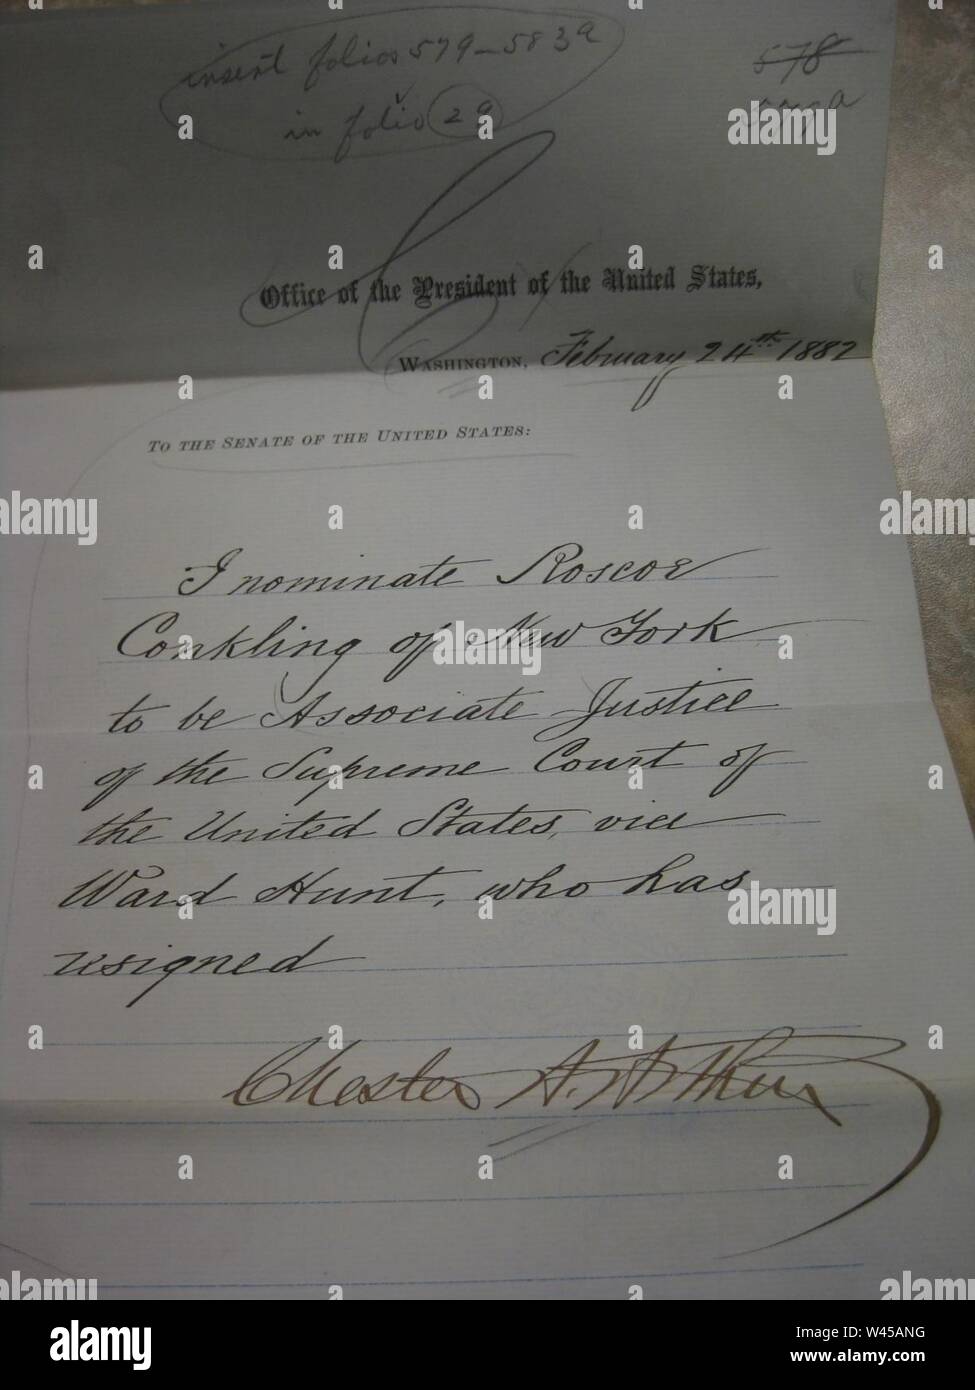 insert folios 579-583a
in folio 29
578
Office of the President of the United States,
Washington, February 24th 1882
To the Senate of the United States:
I nominate Roscoe
Conkling of New York
to be Associate Justice
of the Supreme Court of
the United States, vice
Ward Hunt, who has
resigned
Chester A. Arthur
alamy
alamy
Image ID: W45ANG
www.alamy.com